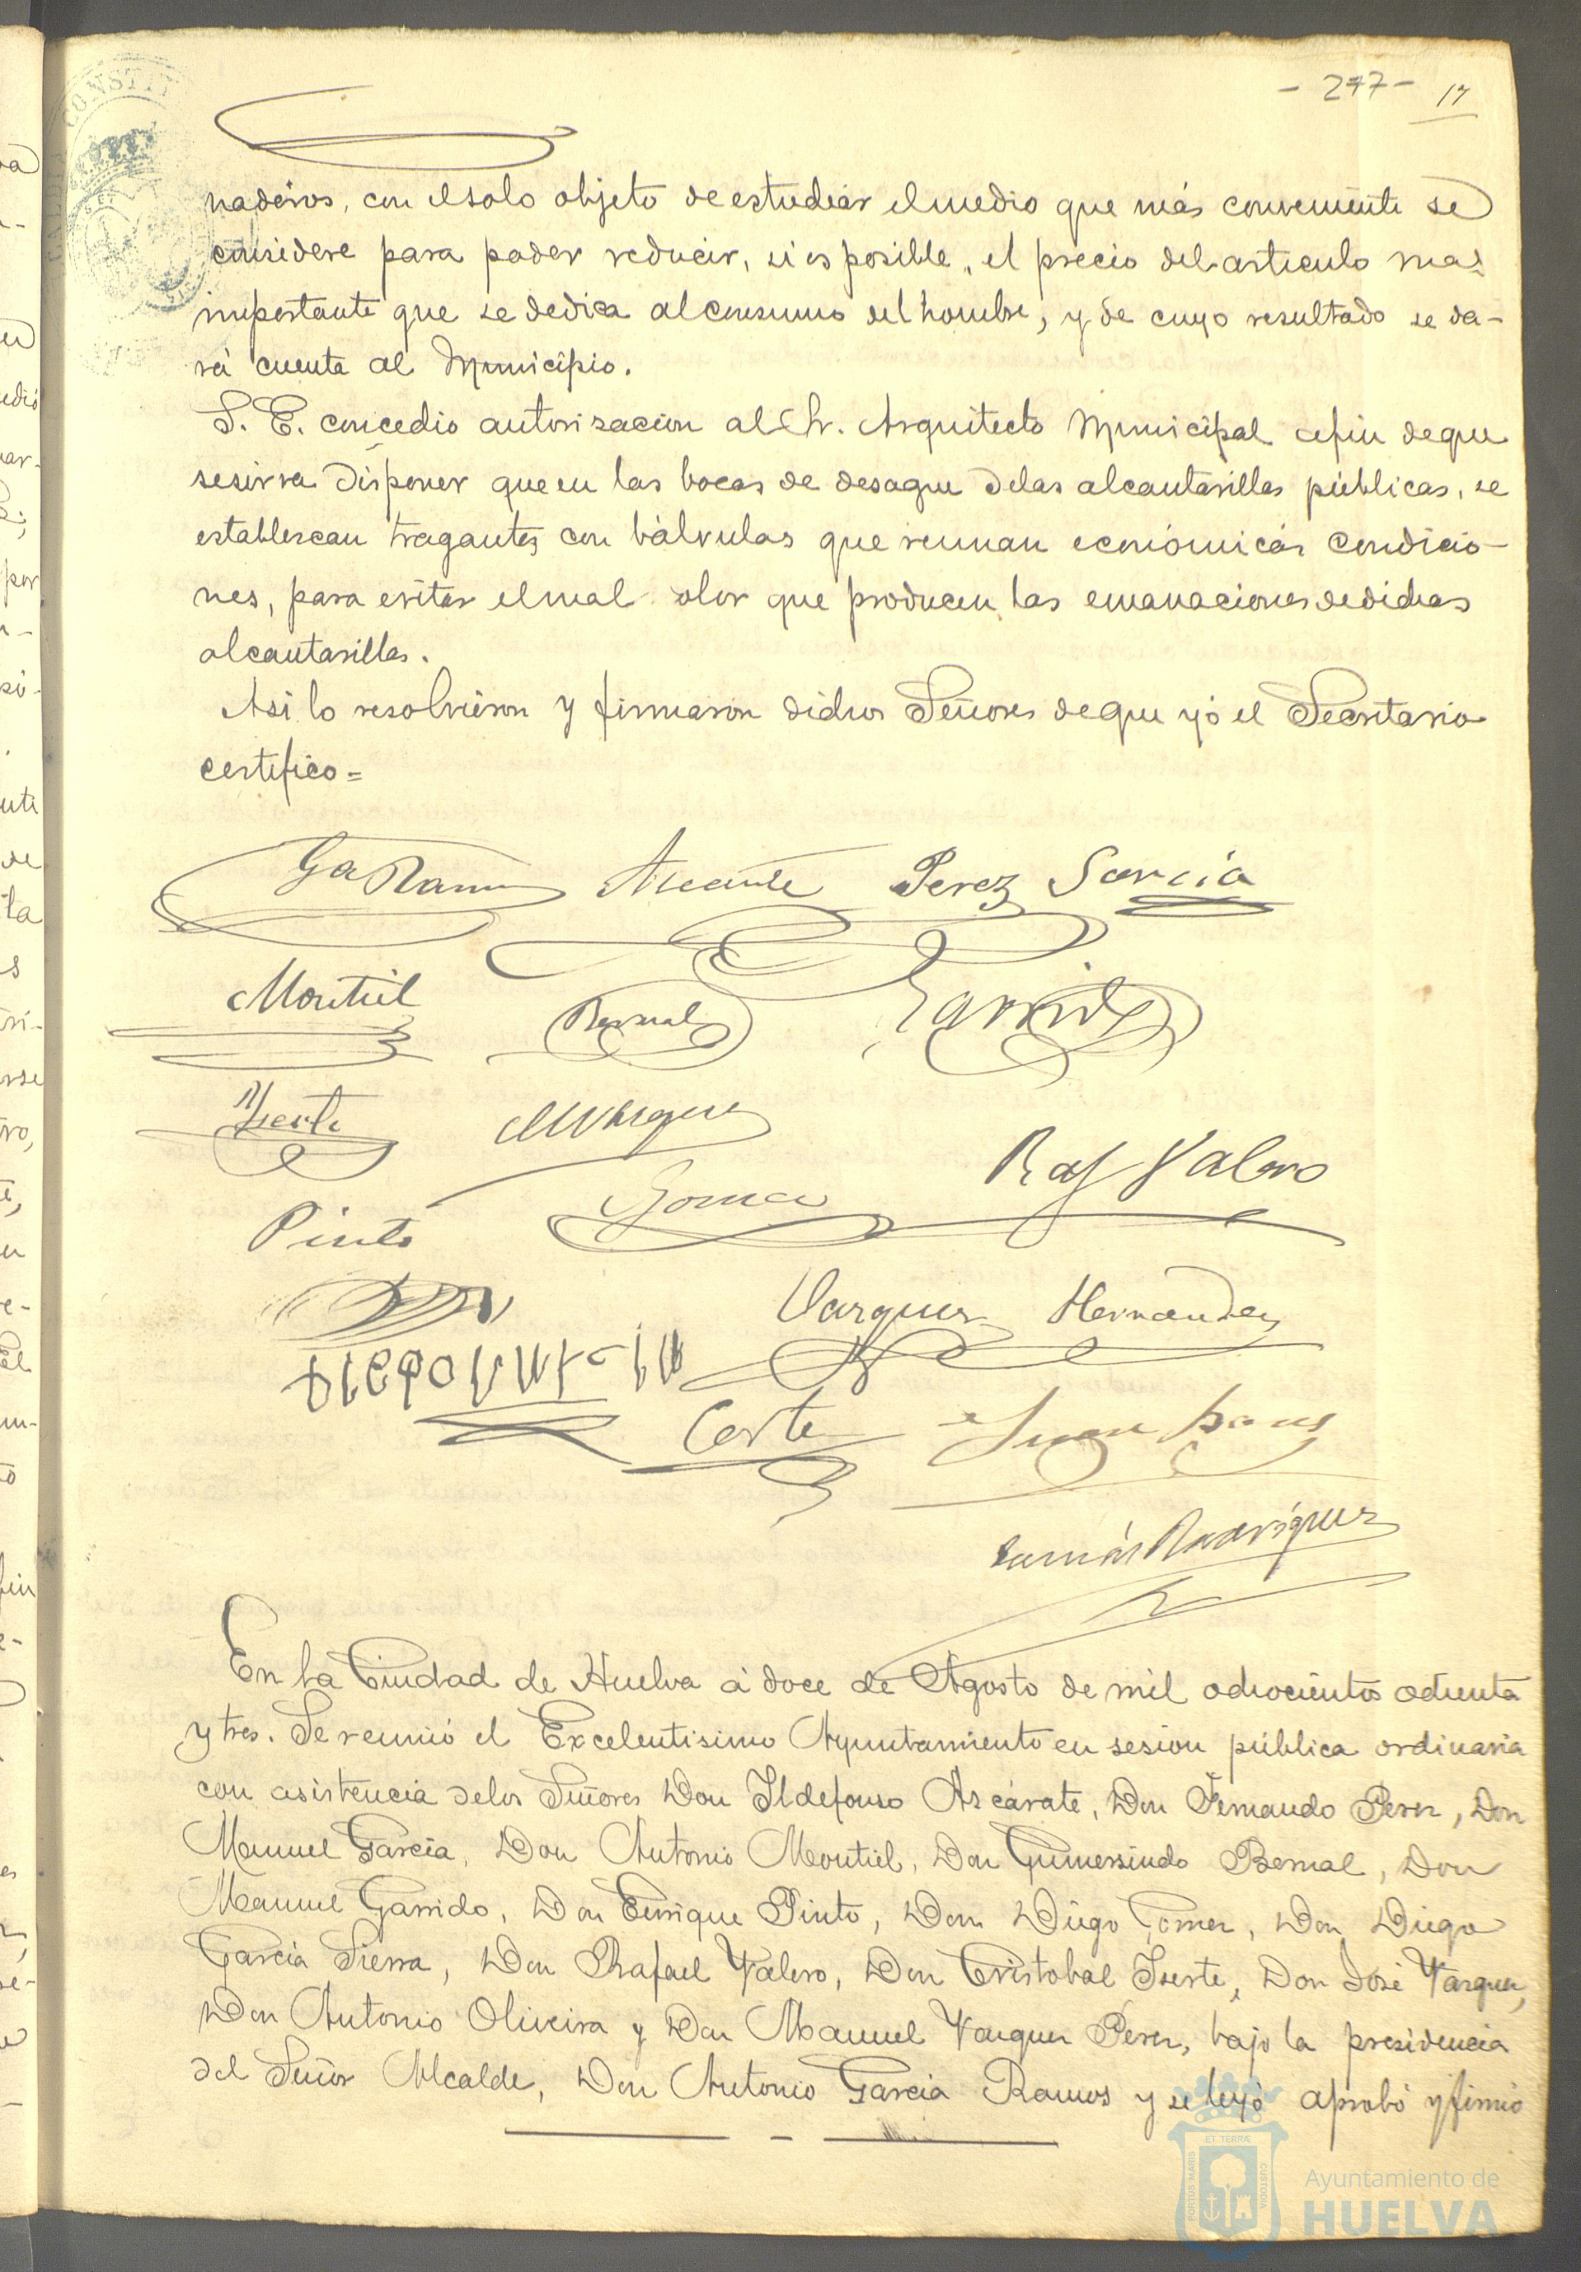 - 277 - 17
naderos, con el solo objeto de estudiar el medio que más conveniente se
considere para poder reducir, si es posible, el precio del articulo mas
importante que se dedica al consumo del hombre, y de cuyo resultado se da-
rá cuenta al Municipio.
S. E. concedio autorizacion al Sr. Arquitecto Municipal afin de que
se sirva disponer que en las bocas de desague de las alcantarillas públicas, se
establezcan tragantes con bálvulas que reunan económicas condicio-
nes, para evitar el mal olor que producen las emanaciones de dichas
alcantarillas.
Asi lo resolvieron y firmaron dichos Señores de que yó el Secretario
certifico=
Ga Ramos Ascarate Perez Garcia
Montiel Bernal Garrido
Yserte M Vazquez
Raf Valero
Pinto Gomez
Vazquez Hernandez
Corte Juan
Tomás Rodriguez
En la Ciudad de Huelva á doce de Agosto de mil ochocientos ochenta
y tres. Se reunió el Excelentisimo Ayuntamiento en sesion pública ordinaria
con asistencia de los Señores Don Ildefonso Ascárate, Don Fernando Perez, Don
Manuel Garcia, Don Antonio Montiel, Don Gumersindo Bernal, Don
Manuel Garrido, Don Enrique Pinto, Don Diego Gomez, Don Diego
Garcia Sierra, Don Rafael Valero, Don Cristobal Iserte, Don José Vazquez,
Don Antonio Oliveira y Don Manuel Vazquez Perez, bajo la presidencia
del Señor Alcalde, Don Antonio Garcia Ramos y se leyó aprobó y firmó
Ayuntamiento de
HUELVA